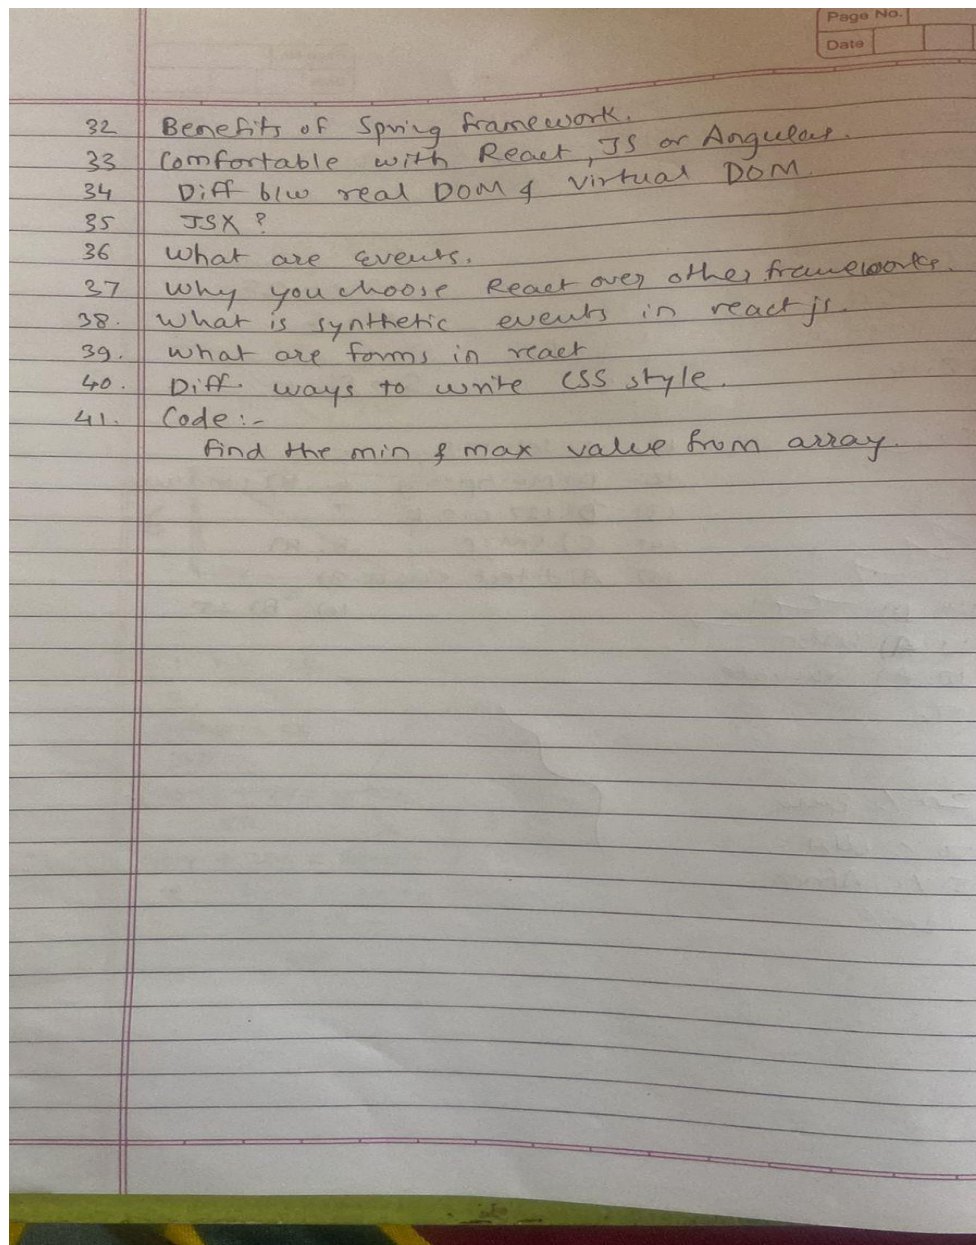 Page No.
Date
32 Benefits of Spring framework.
33 Comfortable with React, JS or Angular.
34 Diff b/w real DOM & virtual DOM.
35 JSX ?
36 What are events.
37 Why you choose React over other frameworks.
38. What is synthetic events in react js.
39. What are forms in react
40. Diff. ways to write CSS style.
41. Code :-
find the min & max value from array.